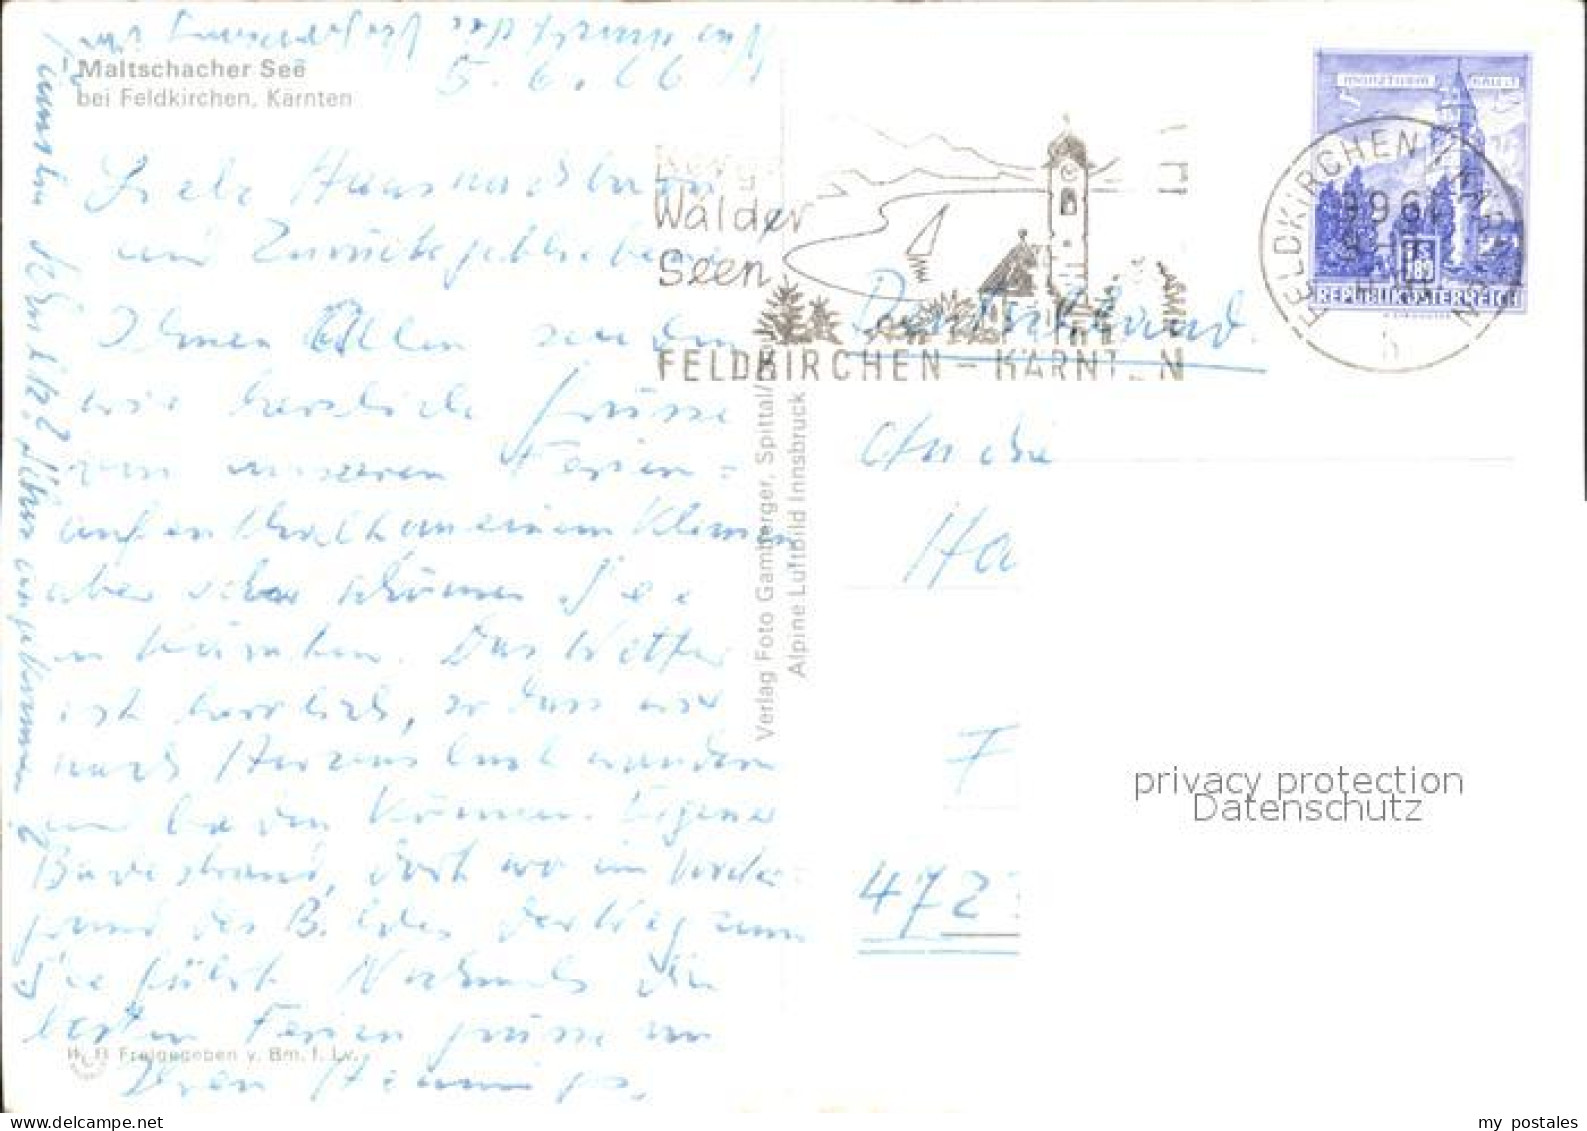 5.6.66
Maltschacher See
bei Feldkirchen, Kärnten
Liebe Hausnachbarn
und Zurückgebliebene
Ihnen Allen senden
wir herzliche Grüsse
von unserem Ferien=
aufenthalt an einem kleinen
aber sehr schönen See
in Kärnten. Das Wetter
ist herrlich, so dass wir
nach Herzenslust wandern
und baden können. Eigener
Badestrand, dort wo im Vorder=
grund des Bildes der Weg zum
See führt. Nochmals die
besten Feriengrüsse von
Ihren
W B Freigegeben v. Bm. f. Lv.
Verlag Foto Gamberger, Spittal/Drau
Alpine Luftbild Innsbruck
Berge
Wälder
Seen
FELDKIRCHEN - KÄRNTEN
MÜNZTURM HALL I. T.
FELDKIRCHEN I. KÄRNTEN
b
S 1.80
REPUBLIK ÖSTERREICH
Deutschland.
An die
Ha
F
472
privacy protection
Datenschutz
my postales